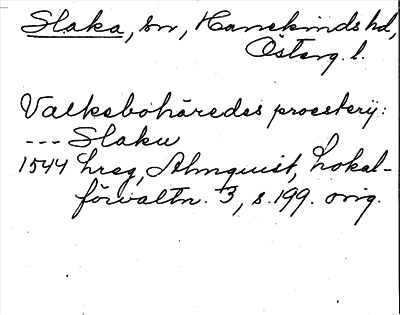 Slaka, sn, Hanekinds hd,
Österg. l.
Valkebohäredes proesterij:
--- Slaku
1544 hreg, Almquist, Lokal-
förvaltn. 3, s. 199. orig.